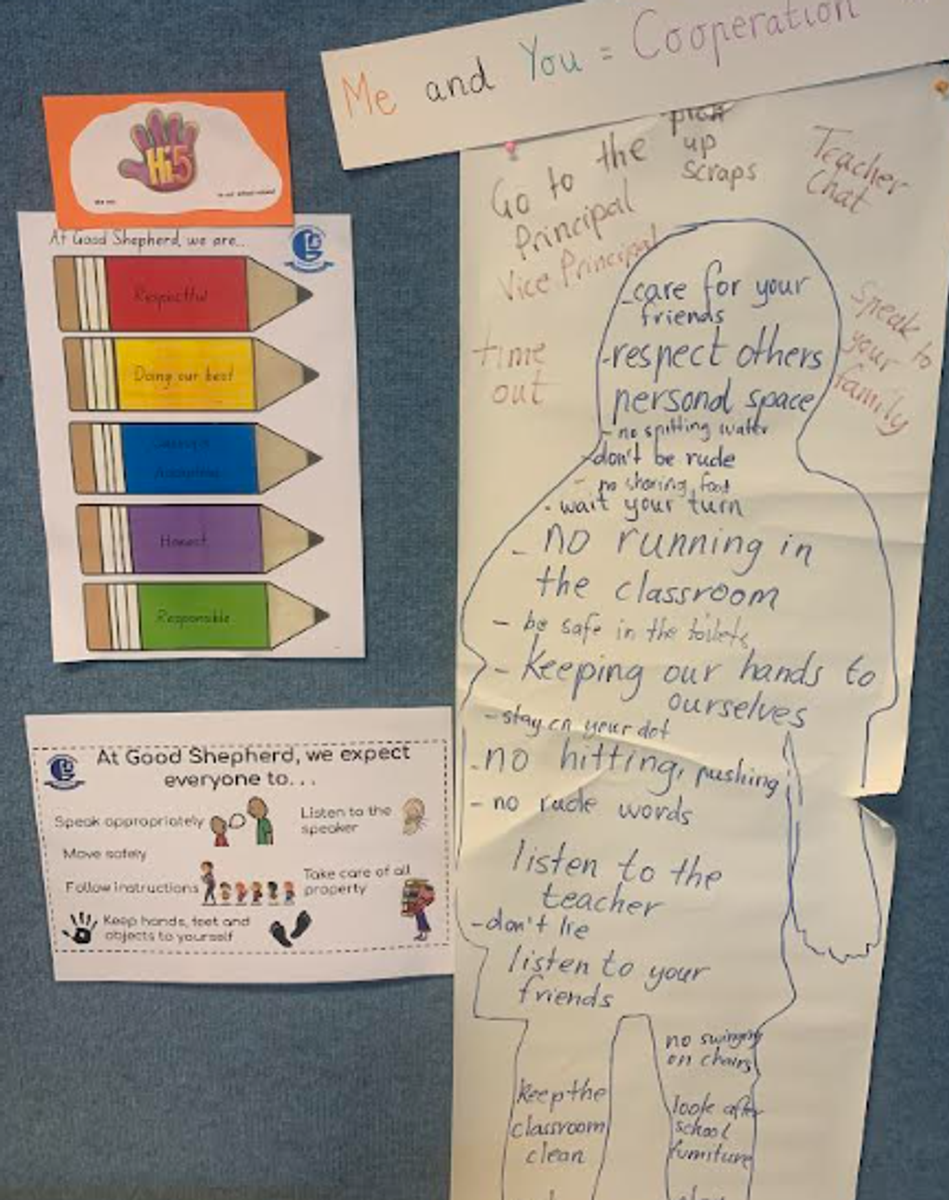 Me and You = Cooperation
Hi5
At Good Shepherd, we are...
Respectful
Doing our best
Honest
Responsible
At Good Shepherd, we expect
everyone to...
Speak appropriately
Listen to the
speaker
Move safely
Follow instructions
Take care of all
property
Keep hands, feet and
objects to yourself
Go to the
Principal
Vice Principal
up
scraps
Teacher
Chat
time
out
Speak to
your
family
-care for your
friends
-respect others
personal space
- no spitting water
-don't be rude
- no sharing food
- wait your turn
- no running in
the classroom
- be safe in the toilets
- Keeping our hands to
ourselves
- stay on your dot
-no hitting, pushing
- no rude words
listen to the
teacher
-don't lie
listen to your
friends
no swinging
on chairs
keep the
classroom
clean
look after
school
furniture